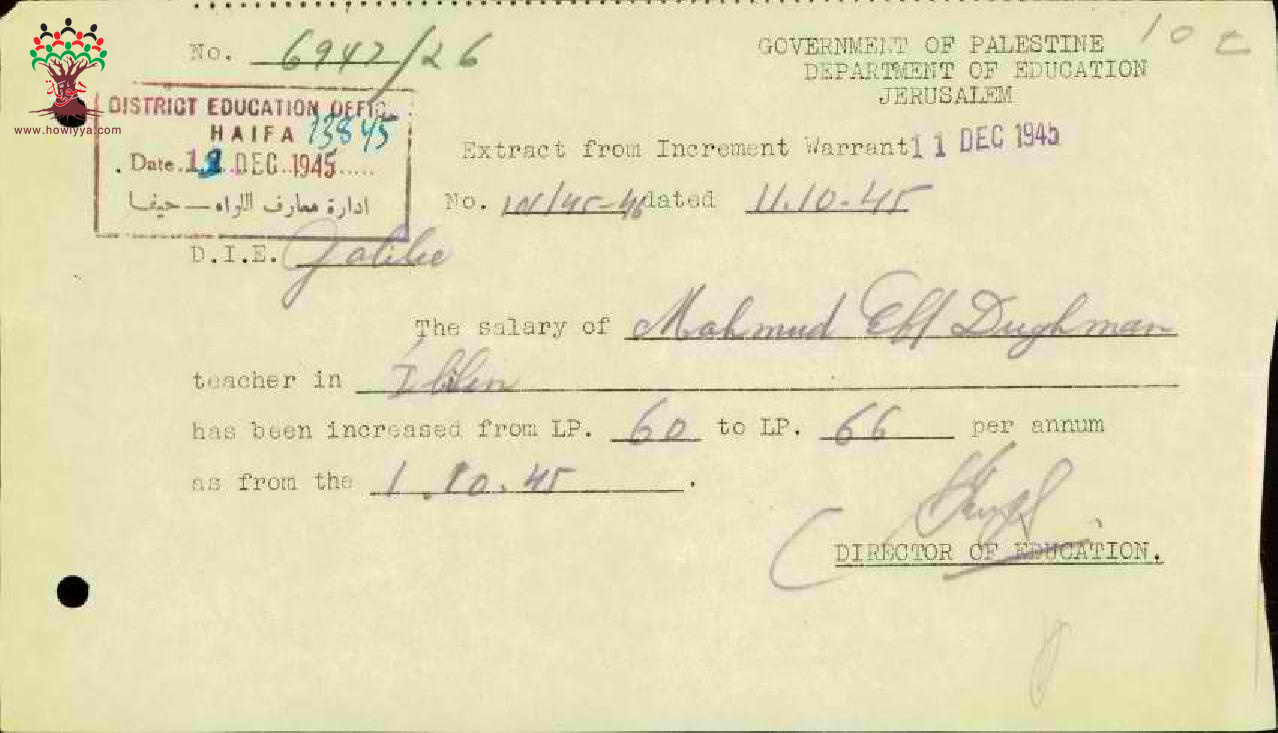 No. 6947/26
GOVERNMENT OF PALESTINE
DEPARTMENT OF EDUCATION
JERUSALEM
www.howiyya.com
DISTRICT EDUCATION OFFIC
HAIFA 13845
Date 12 DEC 1945
ادارة معارف اللواء — حيفا
Extract from Increment Warrant 11 DEC 1945
No. /45-46 dated 11.10.45
D.I.E. Galilee
The salary of Mahmud Eff Dughman
teacher in I'blin
has been increased from LP. 60 to LP. 66 per annum
as from the 1.10.45.
DIRECTOR OF EDUCATION.